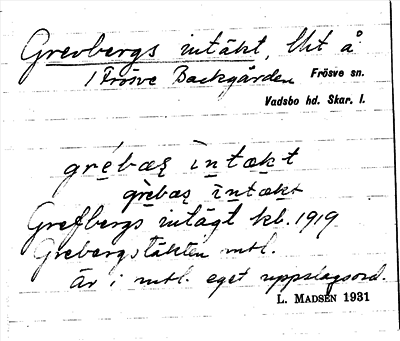 Grevbergs intäkt, lht å
1 Frösve Backgården Frösve sn.
Vadsbo hd. Skar. l.
grebæʂ ìntækt
grèbaʂ ìntækt
Grefbergs intägt kb. 1919
Grebergstäkten mtl.
är i mtl. eget uppslagsord.
L. MADSÉN 1931